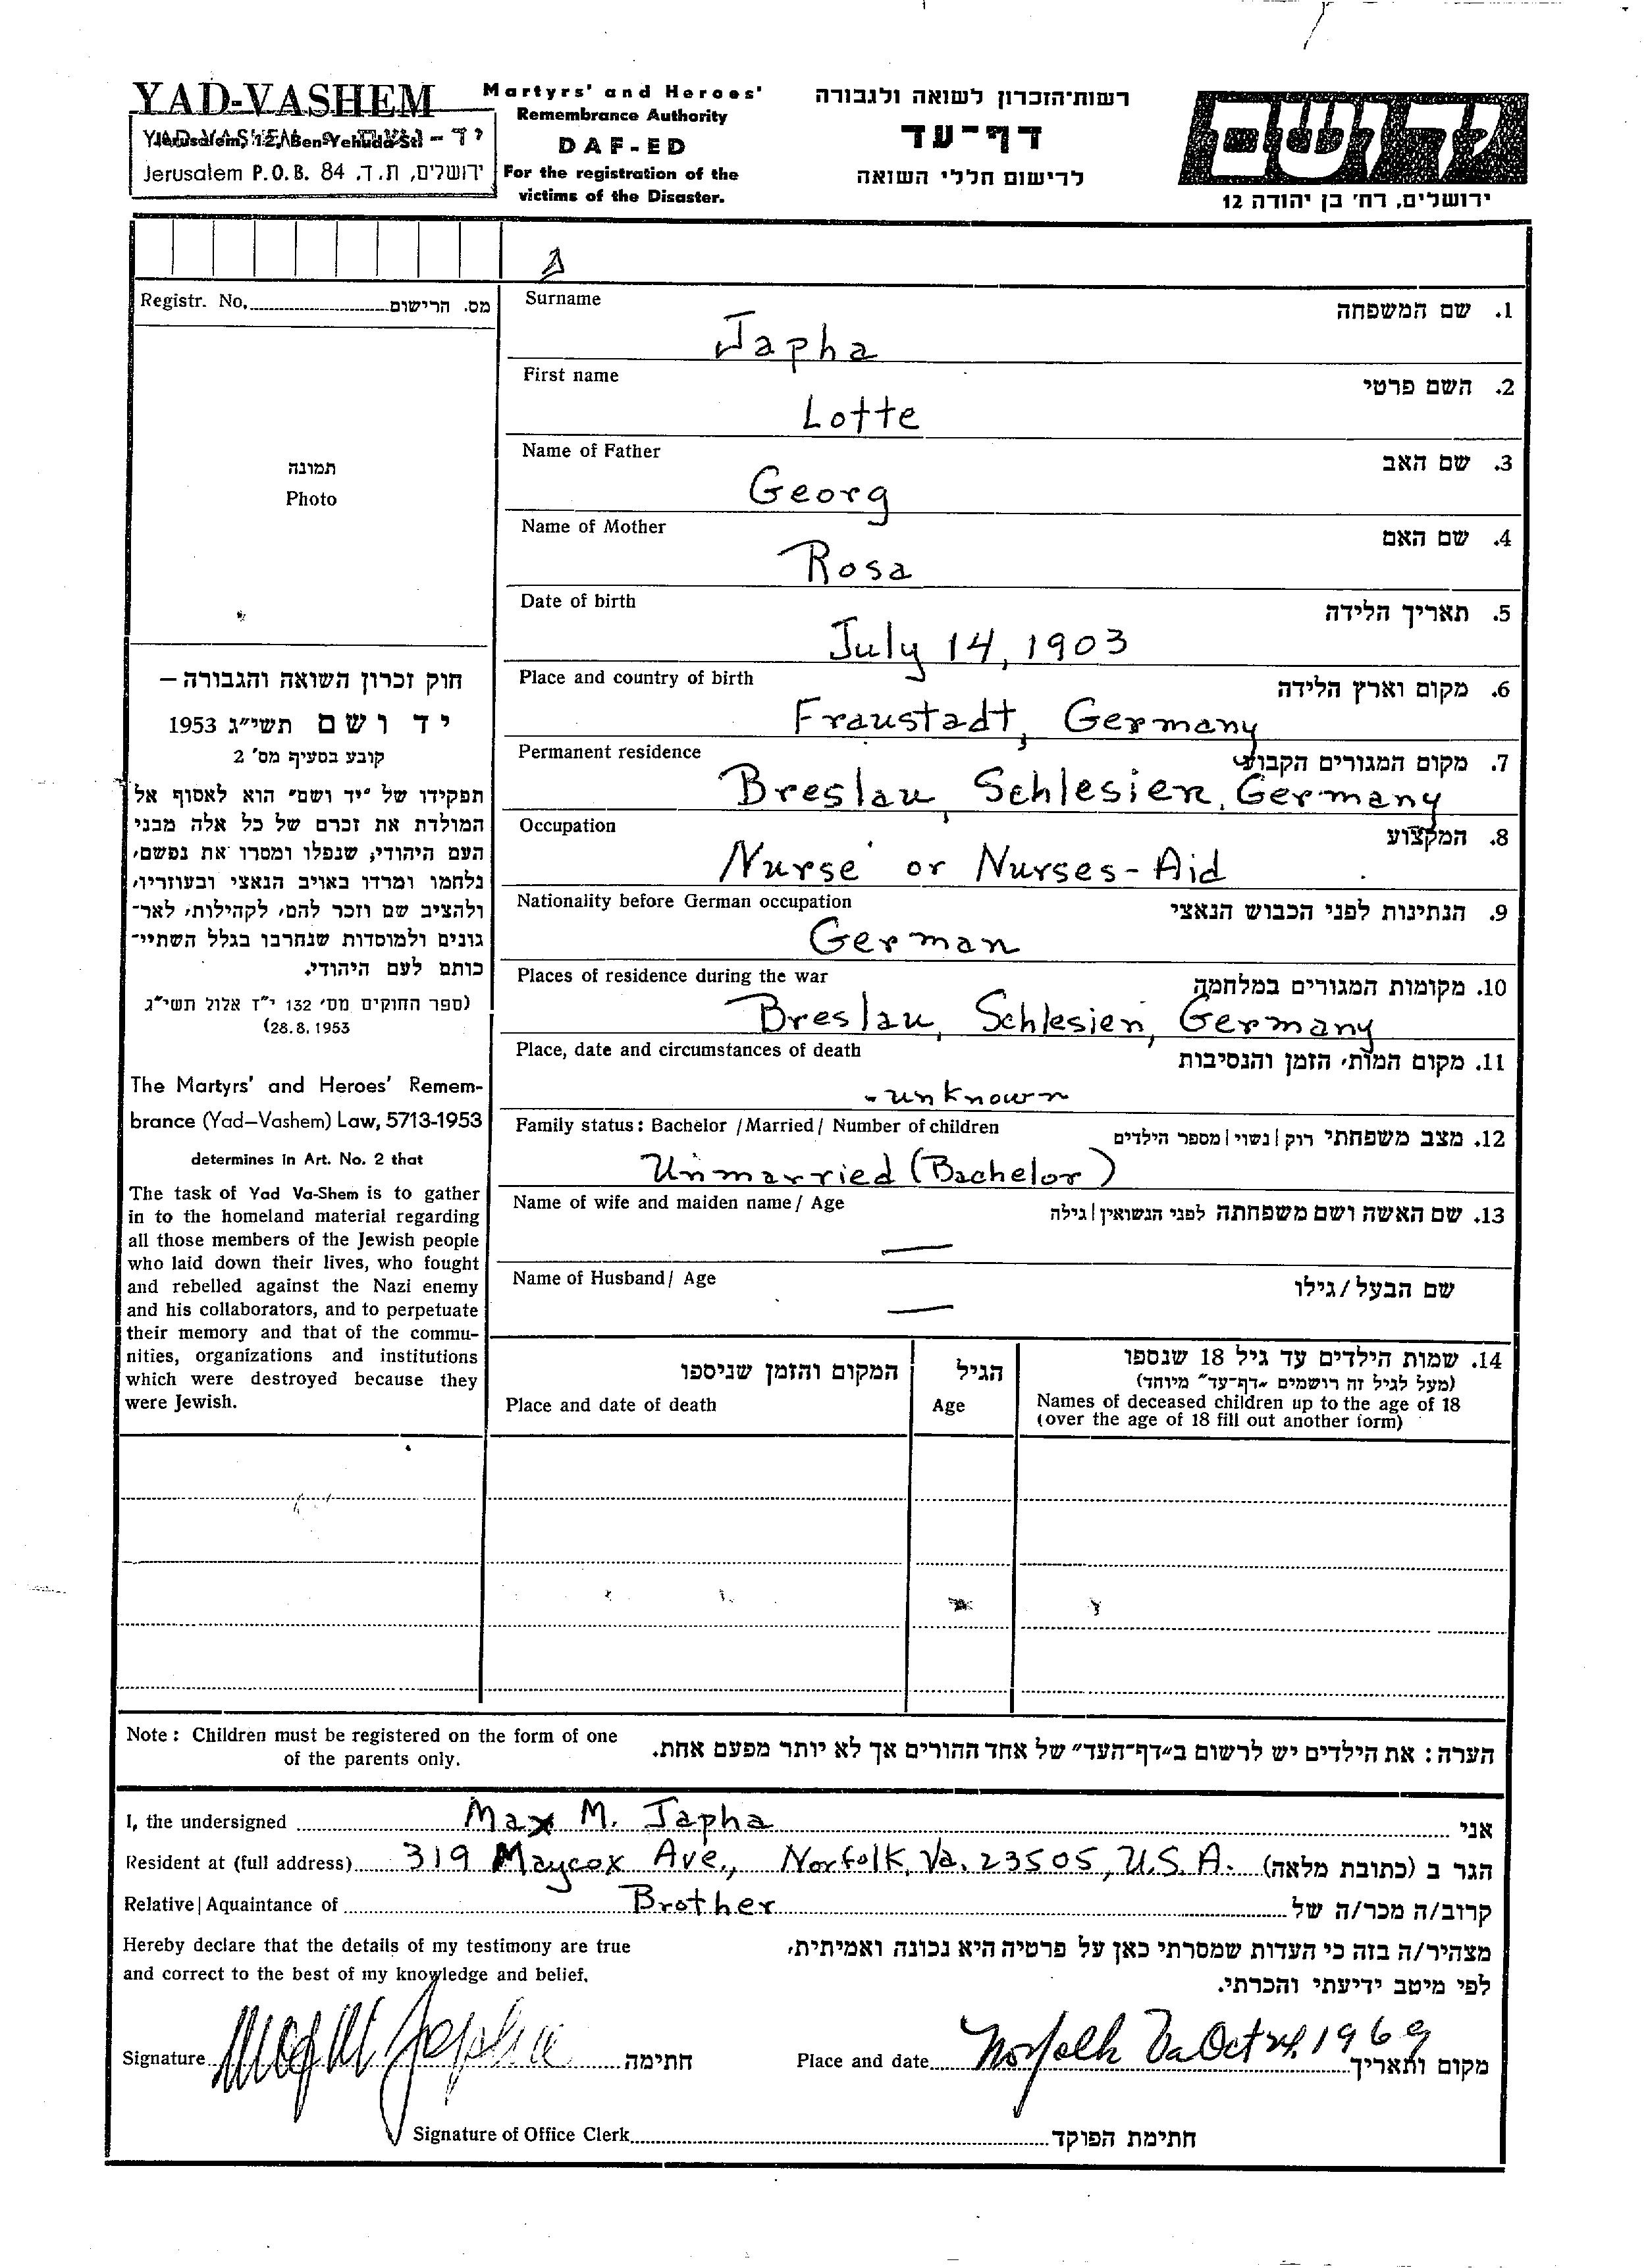 YAD-VASHEM
Jerusalem, 12, Ben Yehuda St.
Jerusalem P.O.B. 84 ירושלים, ת.ד.
Martyrs' and Heroes'
Remembrance Authority
DAF-ED
For the registration of the
victims of the Disaster.
רשות־הזכרון לשואה ולגבורה
דף־עד
לרישום חללי השואה
ידושם
ירושלים, רח' בן יהודה 12
Registr. No. מס. הרישום
תמונה
Photo
חוק זכרון השואה והגבורה –
יד ושם תשי"ג 1953
קובע בסעיף מס' 2
תפקידו של "יד ושם" הוא לאסוף אל
המולדת את זכרם של כל אלה מבני
העם היהודי, שנפלו ומסרו את נפשם,
נלחמו ומרדו באויב הנאצי ובעוזריו,
ולהציב שם וזכר להם, לקהילות, לאר־
גונים ולמוסדות שנחרבו בגלל השתיי־
כותם לעם היהודי.
(ספר החוקים מס' 132 י"ז אלול תשי"ג
28.8.1953)
The Martyrs' and Heroes' Remem-
brance (Yad–Vashem) Law, 5713-1953
determines in Art. No. 2 that
The task of Yad Va-Shem is to gather
in to the homeland material regarding
all those members of the Jewish people
who laid down their lives, who fought
and rebelled against the Nazi enemy
and his collaborators, and to perpetuate
their memory and that of the commu-
nities, organizations and institutions
which were destroyed because they
were Jewish.
Surname 1. שם המשפחה
Japha
First name 2. השם פרטי
Lotte
Name of Father 3. שם האב
Georg
Name of Mother 4. שם האם
Rosa
Date of birth 5. תאריך הלידה
July 14, 1903
Place and country of birth 6. מקום וארץ הלידה
Fraustadt, Germany
Permanent residence 7. מקום המגורים הקבוע
Breslau, Schlesien, Germany
Occupation 8. המקצוע
Nurse or Nurses-Aid
Nationality before German occupation 9. הנתינות לפני הכבוש הנאצי
German
Places of residence during the war 10. מקומות המגורים במלחמה
Breslau, Schlesien, Germany
Place, date and circumstances of death 11. מקום המות, הזמן והנסיבות
- unknown
Family status: Bachelor / Married / Number of children 12. מצב משפחתי רוק | נשוי | מספר הילדים
Unmarried (Bachelor)
Name of wife and maiden name / Age 13. שם האשה ושם משפחתה לפני הנשואין | גילה
—
Name of Husband / Age שם הבעל / גילו
—
המקום והזמן שניספו
Place and date of death
הגיל
Age
14. שמות הילדים עד גיל 18 שנספו
(מעל לגיל זה רושמים "דף־עד" מיוחד)
Names of deceased children up to the age of 18
(over the age of 18 fill out another form)
Note: Children must be registered on the form of one
of the parents only.
הערה: את הילדים יש לרשום ב"דף־העד" של אחד ההורים אך לא יותר מפעם אחת.
I, the undersigned Max M. Japha אני
Resident at (full address) 319 Maycox Ave., Norfolk, Va. 23505, U.S.A. הגר ב (כתובת מלאה)
Relative | Aquaintance of Brother קרוב/ה מכר/ה של
Hereby declare that the details of my testimony are true
and correct to the best of my knowledge and belief.
מצהיר/ה בזה כי העדות שמסרתי כאן על פרטיה היא נכונה ואמיתית,
לפי מיטב ידיעתי והכרתי.
Signature Max M Japha חתימה
Place and date Norfolk Va Oct 24, 1969 מקום ותאריך
Signature of Office Clerk חתימת הפוקד